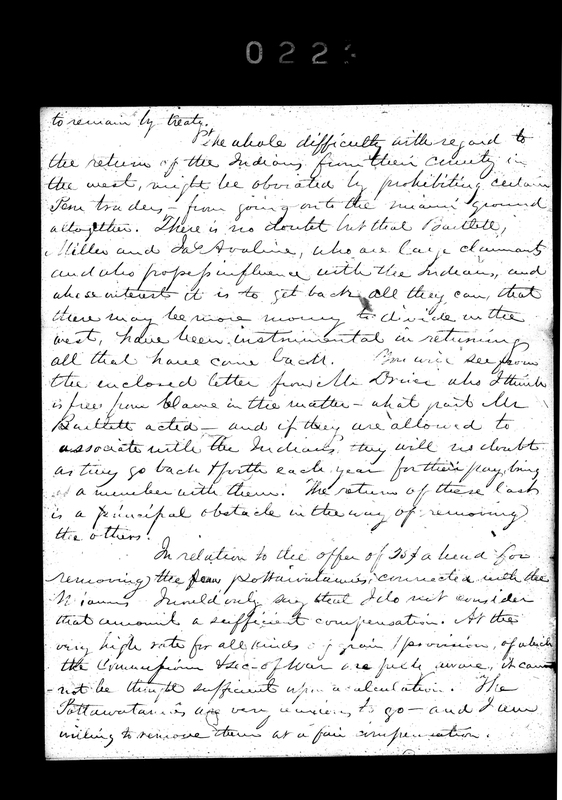 0223
to remain by treaty.
The whole difficulty with regard to
the return of the Indians from their county in
the west, might be obviated by prohibiting certain
traders from going onto the miami ground
altogether. There is no doubt but that Bartlett,
Miller and Jas Avaline, who are large claimants
and who possess influence with the Indians, and
whose interest it is to get back all they can, that
there may be more money to divide in the
west, have been instrumental in returning
all that have come back. You will see from
the inclosed letter from Mr Brice who I think
is free from blame in this matter – what part Mr
Bartlett acted – and if they are allowed to
associate with the Indians they will no doubt
as they go back & forth each year for their pay, bring
a member with them. The return of these last
is a principal obstacle in the way of removing
the others.
In relation to the offer of a head for
removing the few pottawatamies, connected with the
Miamis I would only say that I do not consider
that amount a sufficient compensation. At the
very high rate for all kinds of grain & provision, of which
the Commissioner & Sec. of War are fully aware, it can
not be thought sufficient upon a calculation. The
Pottawatamies are very anxious to go – and I am
willing to remove them at a fair compensation.